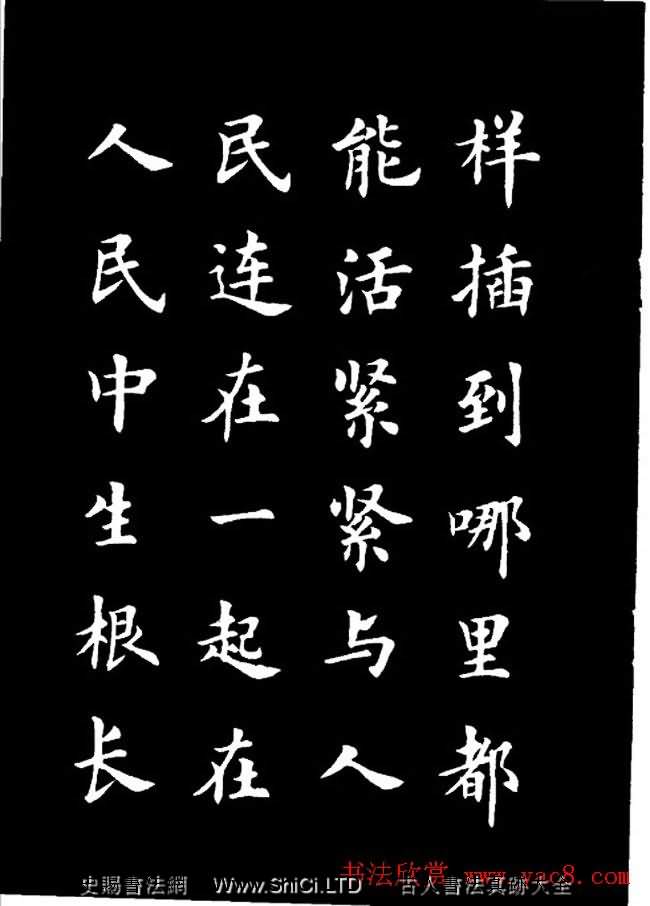 样插到哪里都
能活紧紧与人
民连在一起在
人民中生根长
书法欣赏 www.yac8.com
史賜書法網 Www.ShiCi.LTD 古人書法真跡大全